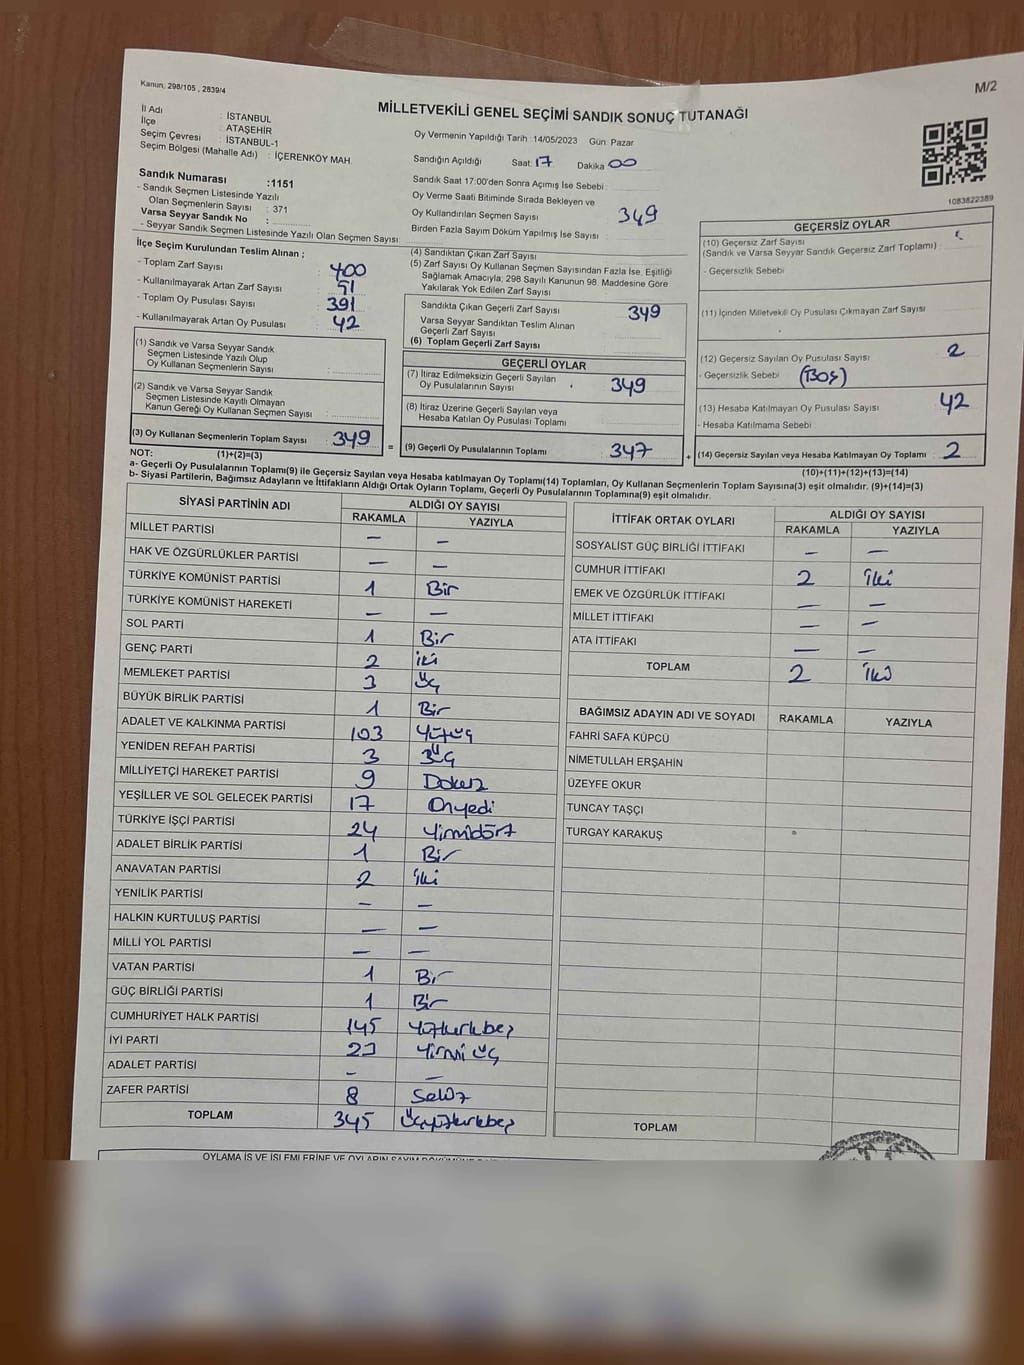 Kanun; 298/105 , 2839/4
M/2
MİLLETVEKİLİ GENEL SEÇİMİ SANDIK SONUÇ TUTANAĞI
İl Adı : İSTANBUL
İlçe : ATAŞEHİR
Seçim Çevresi : İSTANBUL-1
Seçim Bölgesi (Mahalle Adı) : İÇERENKÖY MAH.
Oy Vermenin Yapıldığı Tarih : 14/05/2023 Gün: Pazar
Sandığın Açıldığı Saat: 17 Dakika 00
Sandık Saat 17:00'den Sonra Açımış İse Sebebi :
Oy Verme Saati Bitiminde Sırada Bekleyen ve
Oy Kullandırılan Seçmen Sayısı : 349
Birden Fazla Sayım Döküm Yapılmış İse Sayısı :
1083822389
Sandık Numarası :1151
- Sandık Seçmen Listesinde Yazılı
Olan Seçmenlerin Sayısı : 371
Varsa Seyyar Sandık No :
- Seyyar Sandık Seçmen Listesinde Yazılı Olan Seçmen Sayısı:
İlçe Seçim Kurulundan Teslim Alınan ;
- Toplam Zarf Sayısı : 400
- Kullanılmayarak Artan Zarf Sayısı : 51
- Toplam Oy Pusulası Sayısı : 391
- Kullanılmayarak Artan Oy Pusulası : 42
(1) Sandık ve Varsa Seyyar Sandık
Seçmen Listesinde Yazılı Olup
Oy Kullanan Seçmenlerin Sayısı :
(2) Sandık ve Varsa Seyyar Sandık
Seçmen Listesinde Kayıtlı Olmayan
Kanun Gereği Oy Kullanan Seçmen Sayısı :
(3) Oy Kullanan Seçmenlerin Toplam Sayısı : 349 =
(4) Sandıktan Çıkan Zarf Sayısı :
(5) Zarf Sayısı Oy Kullanan Seçmen Sayısından Fazla İse, Eşitliği
Sağlamak Amacıyla; 298 Sayılı Kanunun 98. Maddesine Göre
Yakılarak Yok Edilen Zarf Sayısı
Sandıkta Çıkan Geçerli Zarf Sayısı : 349
Varsa Seyyar Sandıktan Teslim Alınan
Geçerli Zarf Sayısı
(6) Toplam Geçerli Zarf Sayısı :
GEÇERLİ OYLAR
(7) İtiraz Edilmeksizin Geçerli Sayılan
Oy Pusulalarının Sayısı : 349
(8) İtiraz Üzerine Geçerli Sayılan veya
Hesaba Katılan Oy Pusulası Toplamı :
(9) Geçerli Oy Pusulalarının Toplamı : 347 +
GEÇERSİZ OYLAR
(10) Geçersiz Zarf Sayısı
(Sandık ve Varsa Seyyar Sandık Geçersiz Zarf Toplamı) :
- Geçersizlik Sebebi :
(11) İçinden Milletvekili Oy Pusulası Çıkmayan Zarf Sayısı :
(12) Geçersiz Sayılan Oy Pusulası Sayısı : 2
- Geçersizlik Sebebi : (Boş)
(13) Hesaba Katılmayan Oy Pusulası Sayısı : 42
- Hesaba Katılmama Sebebi :
(14) Geçersiz Sayılan veya Hesaba Katılmayan Oy Toplamı : 2
NOT: (1)+(2)=(3)
(10)+(11)+(12)+(13)=(14)
a- Geçerli Oy Pusulalarının Toplamı(9) ile Geçersiz Sayılan veya Hesaba katılmayan Oy Toplamı(14) Toplamları, Oy Kullanan Seçmenlerin Toplam Sayısına(3) eşit olmalıdır. (9)+(14)=(3)
b- Siyasi Partilerin, Bağımsız Adayların ve İttifakların Aldığı Ortak Oyların Toplamı, Geçerli Oy Pusulalarının Toplamına(9) eşit olmalıdır.
SİYASİ PARTİNİN ADI ALDIĞI OY SAYISI
RAKAMLA YAZIYLA
MİLLET PARTİSİ — —
HAK VE ÖZGÜRLÜKLER PARTİSİ — —
TÜRKİYE KOMÜNİST PARTİSİ 1 Bir
TÜRKİYE KOMÜNİST HAREKETİ — —
SOL PARTİ 1 Bir
GENÇ PARTİ 2 iki
MEMLEKET PARTİSİ 3 Üç
BÜYÜK BİRLİK PARTİSİ 1 Bir
ADALET VE KALKINMA PARTİSİ 103 Yüzüç
YENİDEN REFAH PARTİSİ 3 Üç
MİLLİYETÇİ HAREKET PARTİSİ 9 Dokuz
YEŞİLLER VE SOL GELECEK PARTİSİ 17 Onyedi
TÜRKİYE İŞÇİ PARTİSİ 24 Yirmidört
ADALET BİRLİK PARTİSİ 1 Bir
ANAVATAN PARTİSİ 2 iki
YENİLİK PARTİSİ — —
HALKIN KURTULUŞ PARTİSİ — —
MİLLİ YOL PARTİSİ — —
VATAN PARTİSİ 1 Bir
GÜÇ BİRLİĞİ PARTİSİ 1 Bir
CUMHURİYET HALK PARTİSİ 145 Yüzkırkbeş
İYİ PARTİ 23 Yirmi üç
ADALET PARTİSİ — —
ZAFER PARTİSİ 8 Sekiz
TOPLAM 345 Üçyüzkırkbeş
İTTİFAK ORTAK OYLARI ALDIĞI OY SAYISI
RAKAMLA YAZIYLA
SOSYALİST GÜÇ BİRLİĞİ İTTİFAKI — —
CUMHUR İTTİFAKI 2 İki
EMEK VE ÖZGÜRLÜK İTTİFAKI — —
MİLLET İTTİFAKI — —
ATA İTTİFAKI — —
TOPLAM 2 İki
BAĞIMSIZ ADAYIN ADI VE SOYADI RAKAMLA YAZIYLA
FAHRİ SAFA KÜPCÜ
NİMETULLAH ERŞAHİN
ÜZEYFE OKUR
TUNCAY TAŞÇI
TURGAY KARAKUŞ
TOPLAM